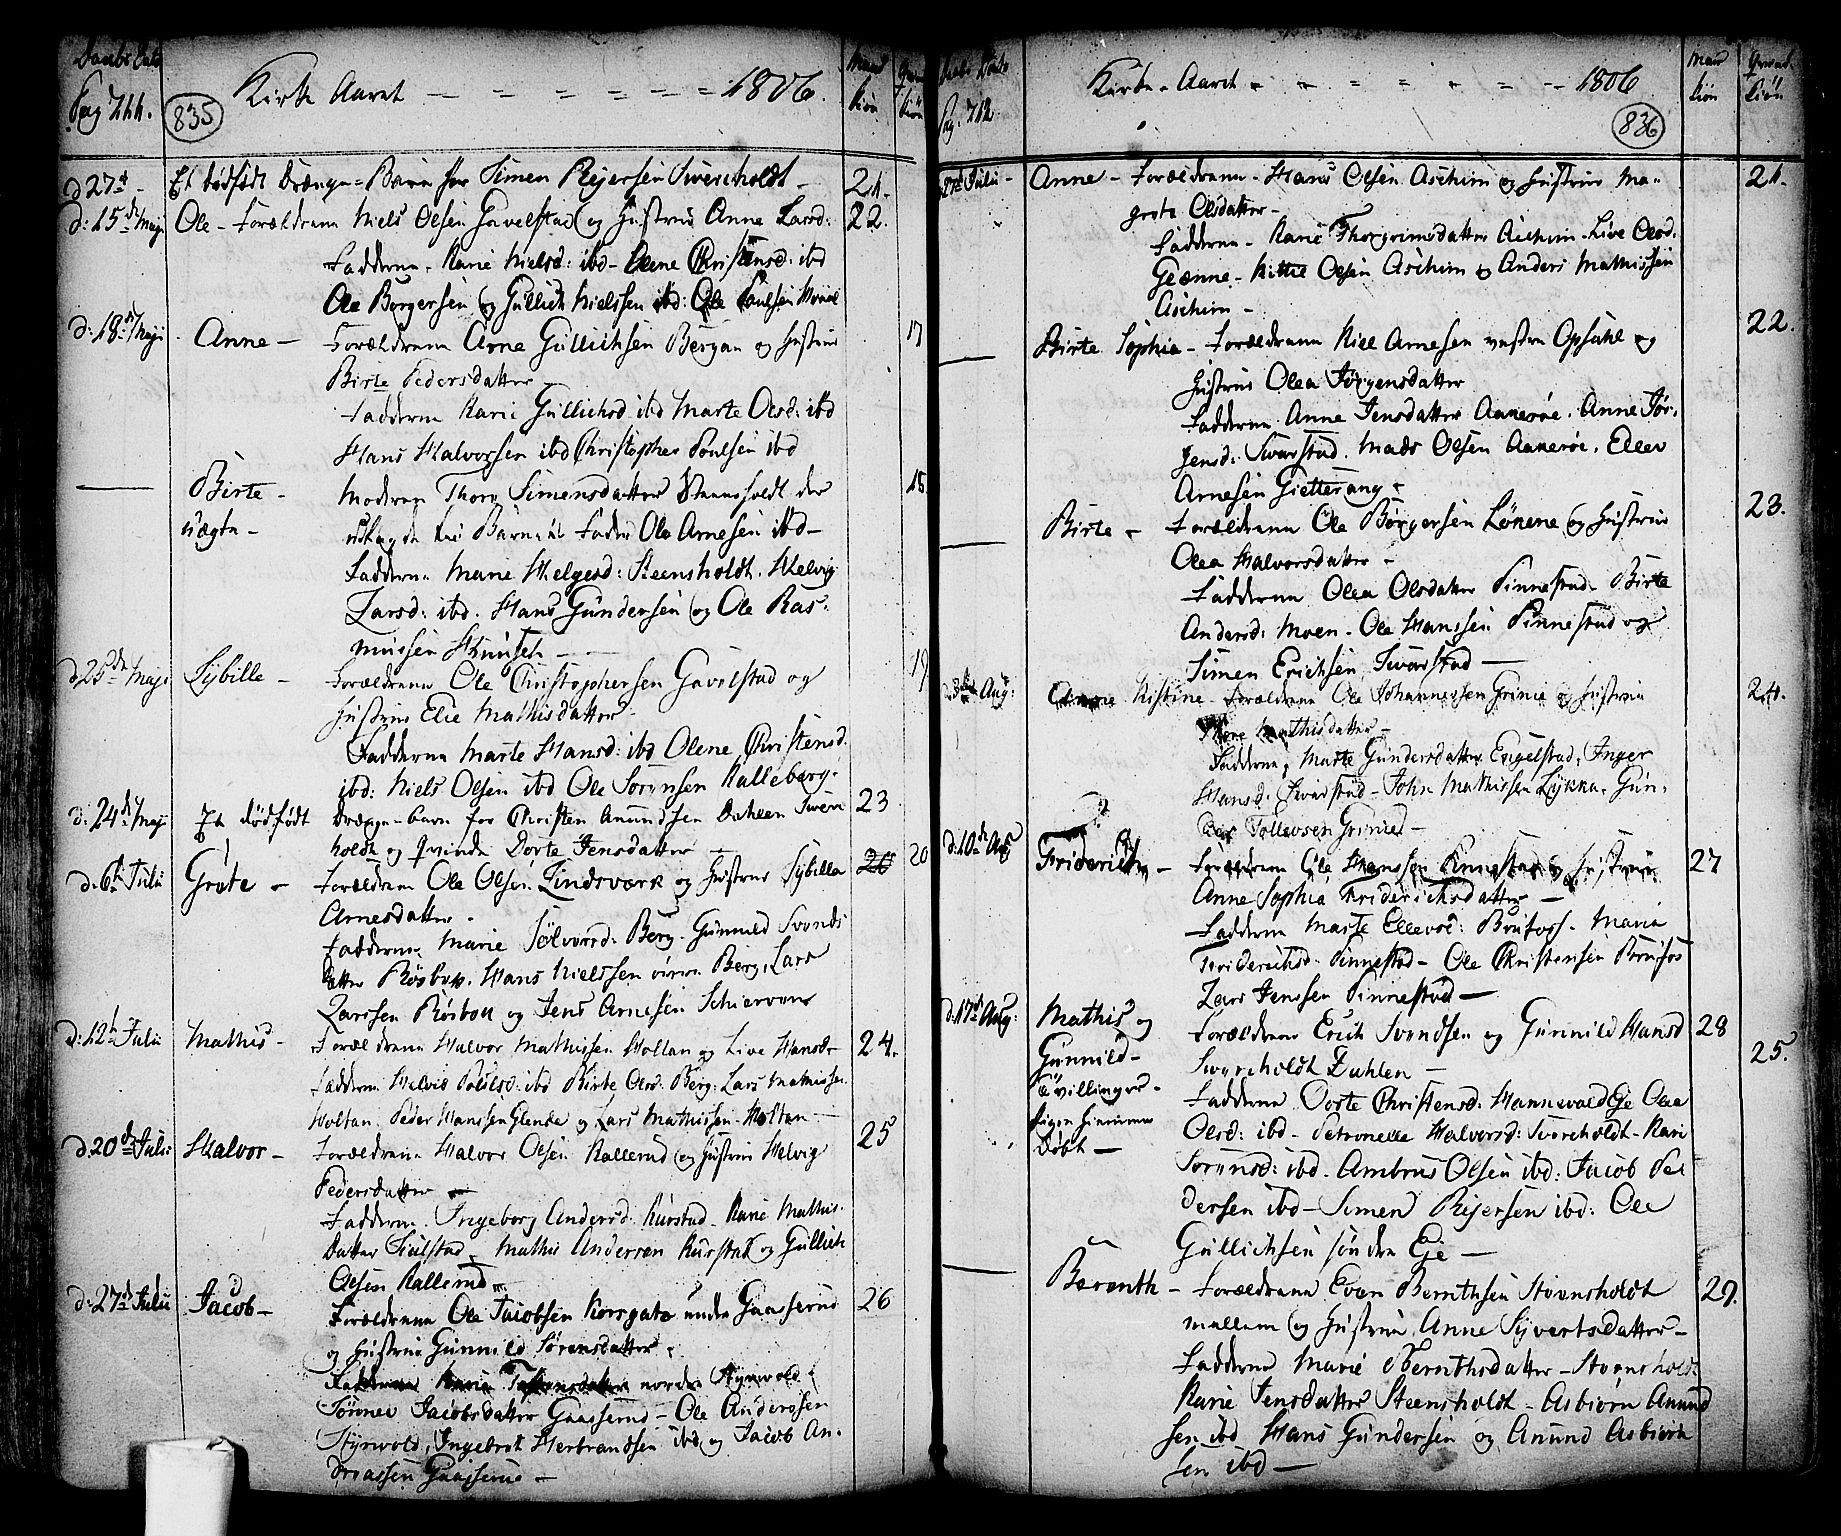 Daabs Dato
Pag 711.
835
Kirke Aaret - - = = = = = 1806.
Mand
Kiön
Qvind
Kiön
d 27de - Et dödfödt Drænge-Barn for Simen Rejersen Sverholdt - 21.
d: 15de Maji Ole - Forældrene Niels Olsen Gavelstad og Hustrue Anne Larsd: 22.
Fadderne. Karie Nielsd: ibd - Olene Christensd: ibd
Ole Borgersen og Gullich Nielssen ibd: Ole Poulsen
d: 18de Maji Anne - Forældrene Arne Gullichsen Bergan og Hustrue 17
Birte Pedersdatter -
Fadderne Karie Gullichsd ibd Marte Olsd: ibd
Hans Halvorsen ibd Christopher Poulsen ibd
Birte - Moderen Thore Simensdatter Steensholdt der 18.
uægte - udlagde til Barnets Fader Ole Arnesen ibd -
Fadderne Marie Helgesd: Steensholdt. Helvig
Larsd: ibd. Hans Gundersen og Ole Ras-
mussen
d 25de Maji Sybille - Forældrene Ole Christophersen Gavelstad og 19
Hustrue Elie Mathisdatter -
Fadderne Marte Hansd: ibd Olene Christensd.
ibd: Niels Olsen ibd Ole Sörensen Kalleberg.
d: 24de Maji Et dödfödt Drænge-barn for Christen Anundsen Dahlen Sver 23
holdt og Qvinde Dorte Jensdatter -
d: 6te Julii Grete - Forældrene Ole Olsen Lindsverk og Hustrue Sybilla 20 20
Arnesdatter -
Fadderne Marie Sölversd: Berg. Gunnild Svends
datter Rösbye. Hans Nielssen övre Berg, Lars
Larssen Röisbou og Jens Arnesen Schiervene
d: 12te Julii Mathis - Forældrene Halvor Mathissen Holtan og Live Hansdr 24.
Fadderne Helvig Poulsd: ibd Birte Olsd: Berg: Lars Mathissen
Holtan Peder Hanssen Glende og Lars Mathissen Holtan -
d. 20de Julii Halvor - Forældrene Halvor Olsen Kallerud og Hustrue Helvig 25
Pedersdatter -
Fadderne. Ingeborg Andersd: Kurstad - Karie Mathis-
datter Siulstad - Mathis Andersen Kurstad og Gullich
Olsen Kallerud -
d: 27de Julii Jacob - Forældrene Ole Jacobsen Korsgate under Gaaserud 26
og Hustrue Gunnild Sörensdatter -
Fadderne Karie Torstensdatter nordre Styrvold
Tönnes Jacobsdatter Gaaserud - Ole Anderssen
Styrvold, Ingebret Herbrandsen ibd og Jacob An-
dreassen Gaaserud -
Daabs Dato
Pag. 712
Kirke-Aaret - - = - = - - 1806
836
Mand
Kiön
Qvind
Kiön
27de Julii - Anne - Forældrene - Hans Olsen Aschim og Hustrue Ma- 21.
grete Olsdatter -
Fadderne - Karie Thorgrimsdatter Aschim - Live Olsd.
Giönne - Kittil Olsen Aschim og Anders Mathissen
Aschim -
Birte Sophie - Forældrene Kiel Arnesen vestre Opsahl og 22.
Hustrue Olea Jörgensdatter
Fadderne. Anne Jensdatter Aakeröe. Anne Jör-
gensd: Svarstad. Mads Olsen Aakeröe. Ellev
Arnesen Gietterang -
Birte - Forældrene Ole Börgersen Lönene og Hustrue 23.
Olea Halvorsdatter -
Fadderne Olea Olsdatter Pinnestad. Birte
Andersd: Moen - Ole Hanssen Pinnestad og
Simen Erichsen Svarstad -
d: 3de Aug: Anne Kistine - Forældrene Ole Johannessen Grinie og Hustrue 24.
Mathisdatter -
Fadderne, Marte Gundersdatter Engelstad, Inger
Hansd: Svarstad - John Mathissen Lykka. Gun-
der Tollevsen Grinie -
d. 10de Aug Friderich - Forældrene Ole Hanssen Pinnestad og Hustrue 27
Anne Sophia Friderichsdatter -
Fadderne Marte Ellevsd: Brufoss - Maria
Friderichsd: Pinnestad - Ole Christensen Brufos
Lars Jenssen Pinnestad -
d. 17de Aug: Mathis og Forældrene Erich Svendsen og Gunnild Hansd 28
Gunnild - Sverholdt Dahlen - 25.
Tvillinger - Fadderne Dorte Christensd: Hannevold Eje Olea
Hjemme Olsd: ibd - Petronelle Halvorsd: Sverholdt - Kari
Döbt - Sörensd: ibd. Ambrus Olsen ibd: Jacob Pe
dersen ibd - Simen Rejersen ibd: Ole
Gullichsen söndre Eje -
Berenth - Forældrene Even Bernthsen Steensholdt 29.
mellem og Hustrue Anne Syvertsdatter -
Fadderne Marie Bernthsdatter - Steensholdt
Karie Jensdatter Steensholdt - Asbiörn Anund
sen ibd Hans Gundersen og Anund Asbiörn
sen ibd -